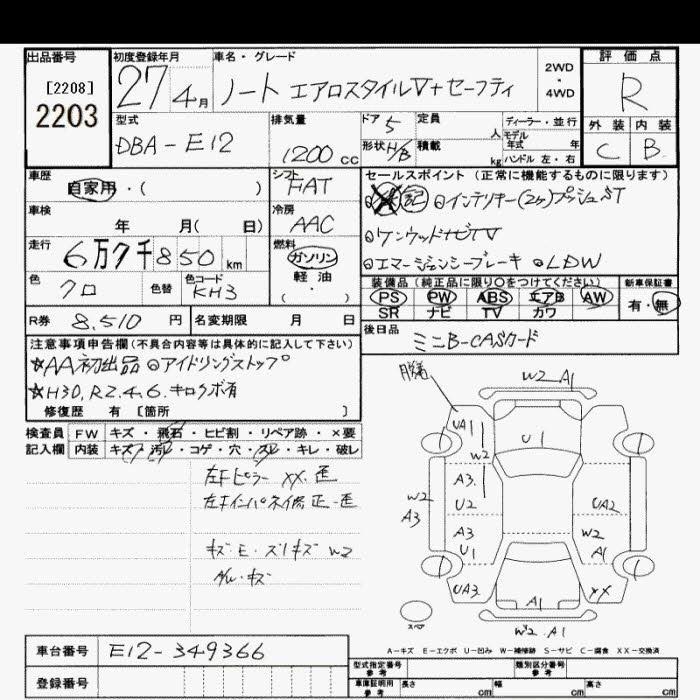 出品番号 初度登録年月 車名・グレード 評価点
[2208]
2203
27 4月 ノート エアロスタイルV+セーフティ 2WD・4WD R
型式 排気量 ドア 5 定員 人 ディーラー・並行 外装 内装
DBA-E12 1200cc 形状 H/B 積載 kg モデル年式 年 ハンドル 左・右 C B
車歴 シフト セールスポイント(正常に機能するものに限ります)
自家用・( ) FAT 記 ◎インテリキー(2ヶ)プッシュST
車検 冷房
年 月( 日) AAC ◎ケンウッドナビTV
走行 燃料
6万7千850km ガソリン 軽油・( ) ◎エマージェンシーブレーキ ◎LDW
色 色替 色コード 装備品(純正品に限り○をつけてください) 新車保証書
クロ KH3 PS PW ABS エアB AW 有・無
SR ナビ TV カワ
R券 8,510円 名変期限 月 日 後日品
ミニB-CASカード
注意事項申告欄(不具合内容等は具体的に記入して下さい)
☆AA初出品 ◎アイドリングストップ
☆H30,R2.4.6.キロクボ有
修復歴 有 [箇所 ]
検査員 FW キズ・飛石・ヒビ割・リペア跡・×要
記入欄 内装 キズ・汚レ・コゲ・穴・スレ・キレ・破レ
左Fピラー XX.歪
左Fインパネイ修正-歪
キズ・E・スリキズ W2
W2 A1
UA1 U1
W2
A3 U2 UA2
W2 A3
A3 U1 W2 A1
UA3 A1 XX
スペア
W2.A1
車台番号 E12-349366
登録番号
A-キズ E-エクボ U-凹み W-補修跡 S-サビ C-腐食 XX-交換済
型式指定番号 参考 類別区分番号 参考
車庫証明用 参考 長さ cm 幅 cm 高さ cm